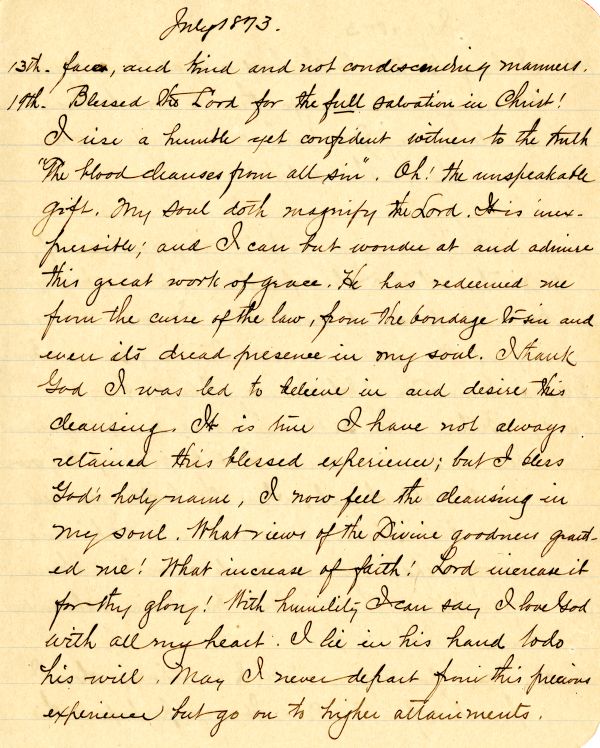 July 1873.
13th. face, and kind and not condescending manners.
19th. Blessed the Lord for the full salvation in Christ!
I use a humble yet confident witness to the truth
"The blood cleanses from all sin". Oh! the unspeakable
gift. My soul doth magnify the Lord. It is inex-
pressible; and I can but wonder at and admire
this great work of grace. He has redeemed me
from the curse of the law, from the bondage to sin and
even its dread presence in my soul. I thank
God I was led to believe in and desire this
cleansing. It is true I have not always
retained this blessed experience; but I bless
God's holy name, I now feel the cleansing in
my soul. What views of the Divine goodness grant-
ed me! What increase of faith! Lord increase it
for thy glory! With humility I can say I love God
with all my heart. I lie in his hand to do
his will. May I never depart from this precious
experience but go on to higher attainments.